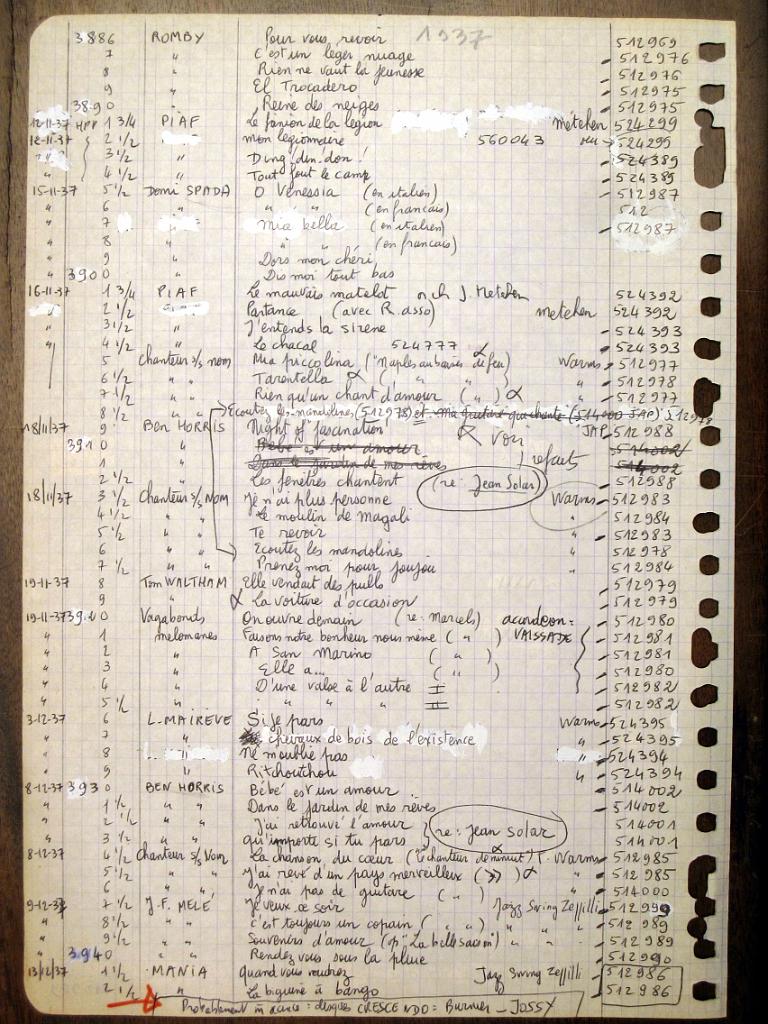 3886 ROMBY Pour vous revoir 1937 512969
7 " C'est un léger nuage 512976
8 " Rien ne vaut la jeunesse 512976
9 " El Trocadero 512975
3890 " Reine des neiges 512975
12-11-37 HPP 1 3/4 PIAF Le fanion de la légion metehen 524299
12-11-37 2 1/2 mon légionnaire 560043 524299
" 3 1/2 " Ding din don! 524389
" 4 1/2 " Tout fout le camp 524389
15-11-37 5 1/2 Domi SPADA O Venessia (en italien) 512987
" 6 " " " (en francais) 512
" 7 " mia bella (en italien) 512987
" 8 " " " (en francais)
" 9 " Dors mon chéri
" 3900 " Dis moi tout bas
16-11-37 1 3/4 PIAF Le mauvais matelot och J. Metehen 524392
2 1/2 Partance (avec R. asso) metehen 524392
" 3 1/2 " J'entends la sirene 524393
" 4 1/2 " Le chacal 524777 524393
5 Chanteur s/s nom Mia piccolina ("Naples au baiser de feu) Warms 512977
6 1/2 " " Tarentella α ( " " ) " 512978
7 1/2 " " Rien qu'un chant d'amour ( " ) α " 512977
8 1/2 " " Ecoutez les mandolines (512978) et Ma guitare qui chante (514000 JAP) 512978
18/11/37 9 Ben HORRIS Night of fascination α voir JAP 512988
" 3910 " Bébé est un amour 514002
" 1 " Dans le jardin de mes rêves } refaits 514002
" 2 1/2 " Les fenêtres chantent (re: Jean Solar) 512988
18/11/37 3 1/2 Chanteur s/s Nom Je n'ai plus personne Warms 512983
" 4 1/2 " " Le moulin de Magali " 512984
" 5 1/2 " " Te revoir " 512983
" 6 " " Ecoutez les mandolines " 512978
" 7 1/2 " " Prenez moi pour joujou " 512984
19-11-37 8 Tom WALTHAM Elle vendait des pulls 512979
" 9 " α La voiture d'occasion 512979
19-11-37 3920 Vagabonds On ouvre demain (re: Marcels) acordeon = 512980
" 1 melomanes Faisons notre bonheur nous même ( " ) VAISSADE 512981
" 2 " A San Marino ( " ) 512981
" 3 " Elle a... ( " ) 512980
" 4 " D'une valse à l'autre I 512982
" 5 1/2 " " " " II 512982
3-12-37 6 L. MAIREVE Si je pars Warms 524395
" 7 " chevaux de bois de l'existence 524395
" 8 " Ne m'oublie pas " 524394
" 9 " Ritchoutchou " 524394
8-12-37 3930 BEN HORRIS Bébé est un amour 514002
" 1 1/2 " " Dans le jardin de mes rêves 514002
" 2 1/2 " " J'ai retrouvé l'amour 514001
" 3 1/2 " " qu'importe si tu pars } (re: Jean Solar) 514001
8-12-37 4 1/2 Chanteur s/s Nom La chanson du cœur ("chanteur de minuit") Warms 512985
" 5 1/2 " " J'ai rêvé d'un pays merveilleux (») α " 512985
" 6 " " Je n'ai pas de guitare ( " ) " 514000
9-12-37 7 1/2 J.F. MELÉ Je veux ce soir Jazz Swing Zeppilli 512990
" 8 1/2 " C'est toujours un copain ( " " ) " " 512989
" 9 1/2 " Souvenirs d'amour (op "La belle saison") " " 512989
" 3940 " Rendez vous sous la pluie 512990
13/12/37 1 1/2 MANIA quand vous voudrez Jazz Swing Zeppilli 512986
" 2 1/2 " La biguine à bango 512986
Probablement m dance: disques CRESCENDO = Burnier - JOSSY